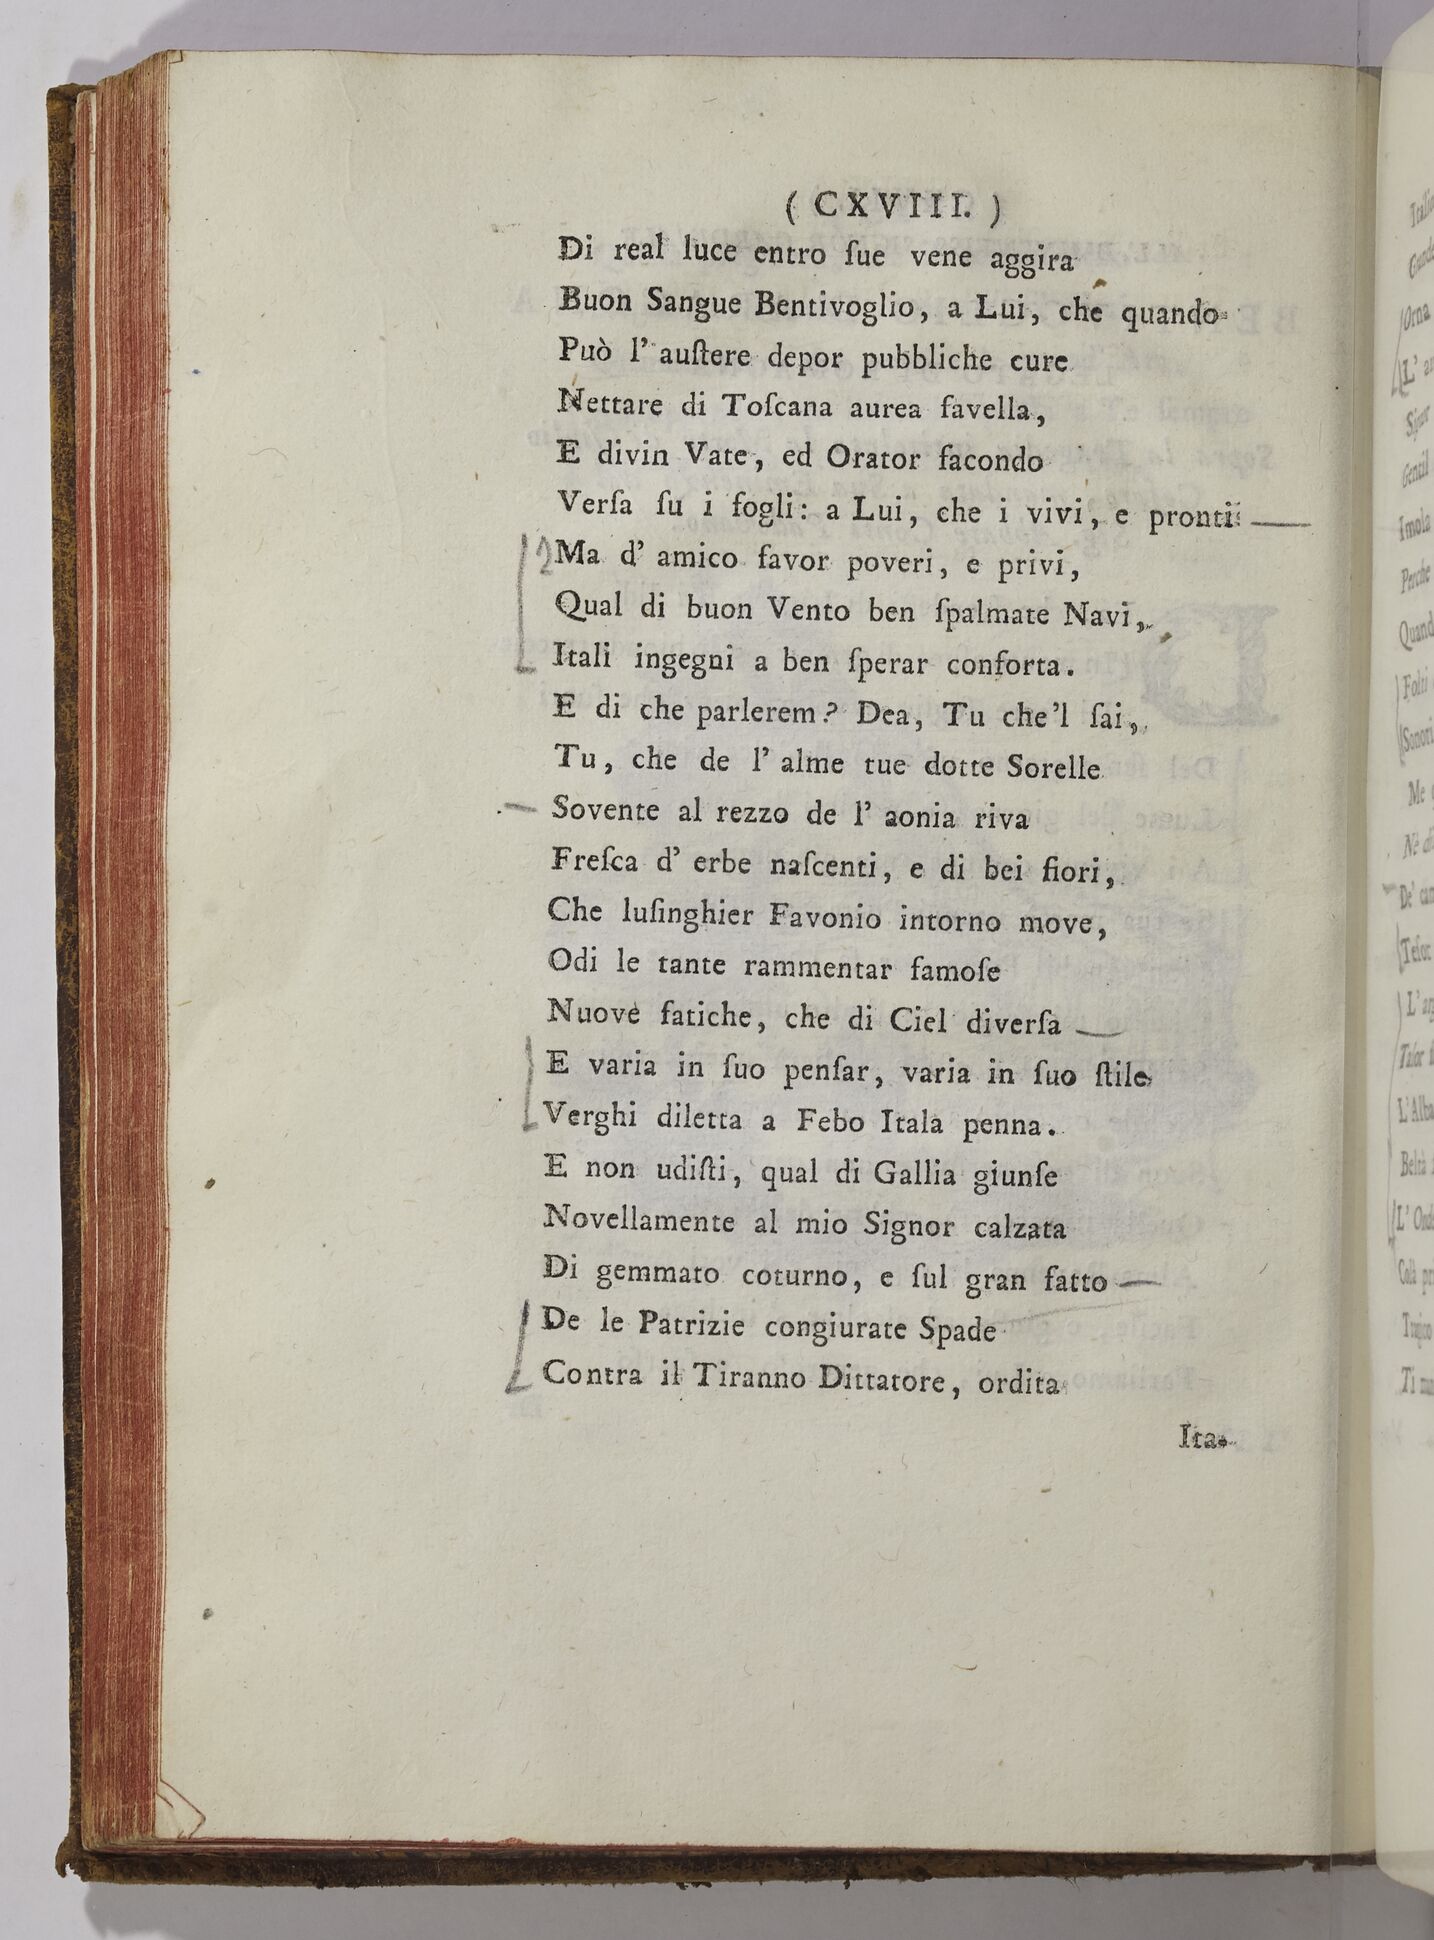 ( CXVIII. )
Di real luce entro ſue vene aggira
Buon Sangue Bentivoglio, a Lui, che quando
Può l' auſtere depor pubbliche cure
Nettare di Toſcana aurea favella,
E divin Vate, ed Orator facondo
Verſa ſu i fogli: a Lui, che i vivi, e pronti
Ma d' amico favor poveri, e privi,
Qual di buon Vento ben ſpalmate Navi,
Itali ingegni a ben ſperar conforta.
E di che parlerem? Dea, Tu che'l ſai,
Tu, che de l' alme tue dotte Sorelle
Sovente al rezzo de l' aonia riva
Freſca d' erbe naſcenti, e di bei fiori,
Che luſinghier Favonio intorno move,
Odi le tante rammentar famoſe
Nuove fatiche, che di Ciel diverſa
E varia in ſuo penſar, varia in ſuo ſtile
Verghi diletta a Febo Itala penna.
E non udiſti, qual di Gallia giunſe
Novellamente al mio Signor calzata
Di gemmato coturno, e ſul gran fatto
De le Patrizie congiurate Spade
Contra il Tiranno Dittatore, ordita
Ita-